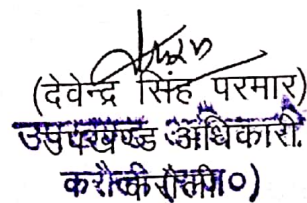 (देवेन्द्र सिंह परमार)
उपखण्ड अधिकारी.
करौली (राज०)